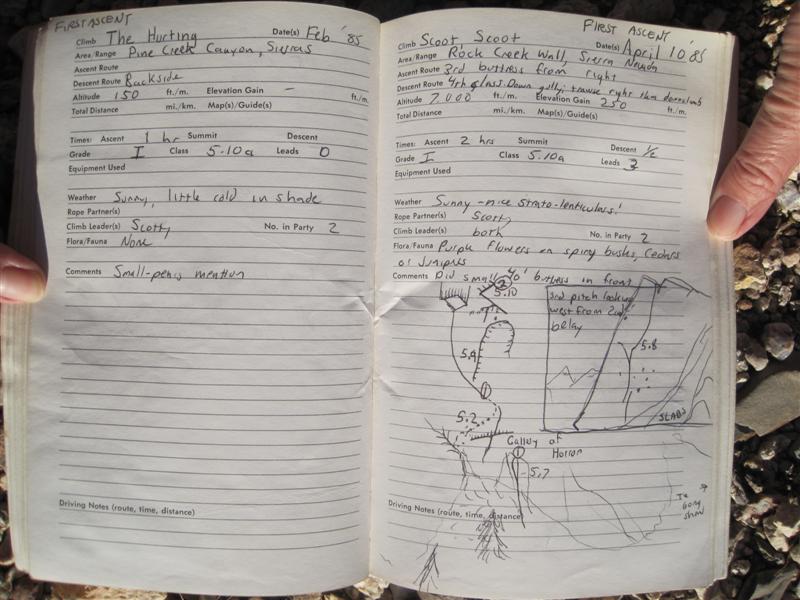 FIRST ASCENT
Climb The Hurting Date(s) Feb '85
Area/Range Pine Creek Canyon, Sierras
Ascent Route
Descent Route Backside
Altitude 150 ft./m. Elevation Gain – ft./m.
Total Distance mi./km. Map(s)/Guide(s)
Times: Ascent 1 hr Summit Descent
Grade I Class 5.10a Leads 0
Equipment Used
Weather Sunny, little cold in shade
Rope Partner(s)
Climb Leader(s) Scotty No. in Party 2
Flora/Fauna None
Comments Small-penis mention
Driving Notes (route, time, distance)
FIRST ASCENT
Climb Scoot Scoot Date(s) April 10 '85
Area/Range Rock Creek Wall, Sierra Nevada
Ascent Route 3rd buttress from right
Descent Route 4th class Down gully; traverse right then downclimb
Altitude 7000 ft./m. Elevation Gain 250 ft./m.
Total Distance mi./km. Map(s)/Guide(s)
Times: Ascent 2 hrs Summit Descent 1/2
Grade I Class 5.10a Leads 3
Equipment Used
Weather Sunny - nice strato-lenticulars!
Rope Partner(s) Scotty
Climb Leader(s) both No. in Party 2
Flora/Fauna Purple flowers on spiny bushs, Cedars
or Junipers
Comments Did small 40' buttress in front
2
5.10
3rd pitch looking
west from 2nd
belay
5.9
5.8
1
5.2
SLABS
Gulley of
Horror
5.7
Driving Notes (route, time, distance)